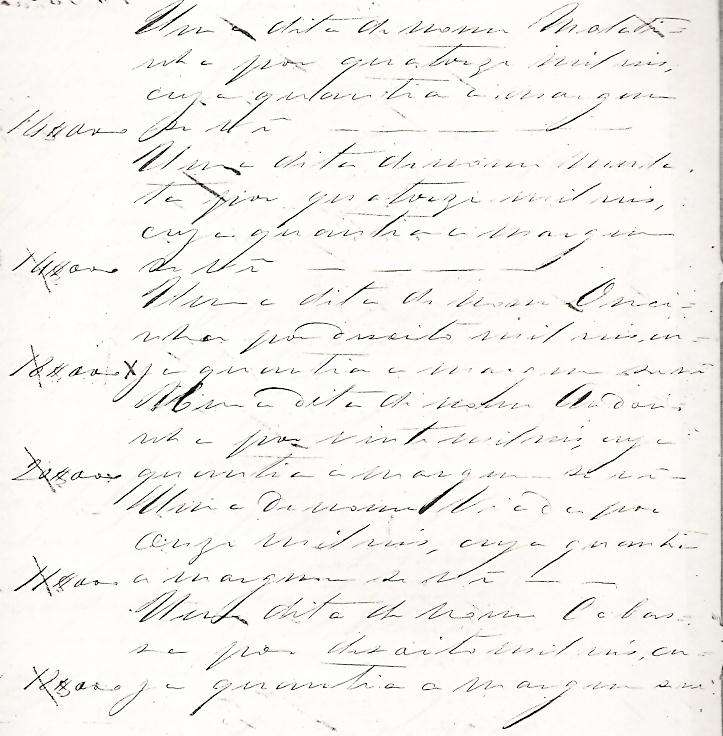 Uma dita de nome Malati=
nha por quatorze mil reis,
cuja quantia a margem
14$000 se vê
Uma dita de nome
ta por quatorze mil reis,
cuja quantia a margem
14$000 se vê
Uma dita de nome Onci=
nha por desoito mil reis, cu=
18$000 ja quantia a margem se vê
Uma dita de nome Andori
nha por vinte mil reis, cuja
20$000 quantia a margem se vê
Uma de nome Viada por
onze mil reis, cuja quantia
11$000 a margem se vê
Uma dita de nome Cabas=
sa por desoito mil reis, cu=
18$000 ja quantia a margem se vê